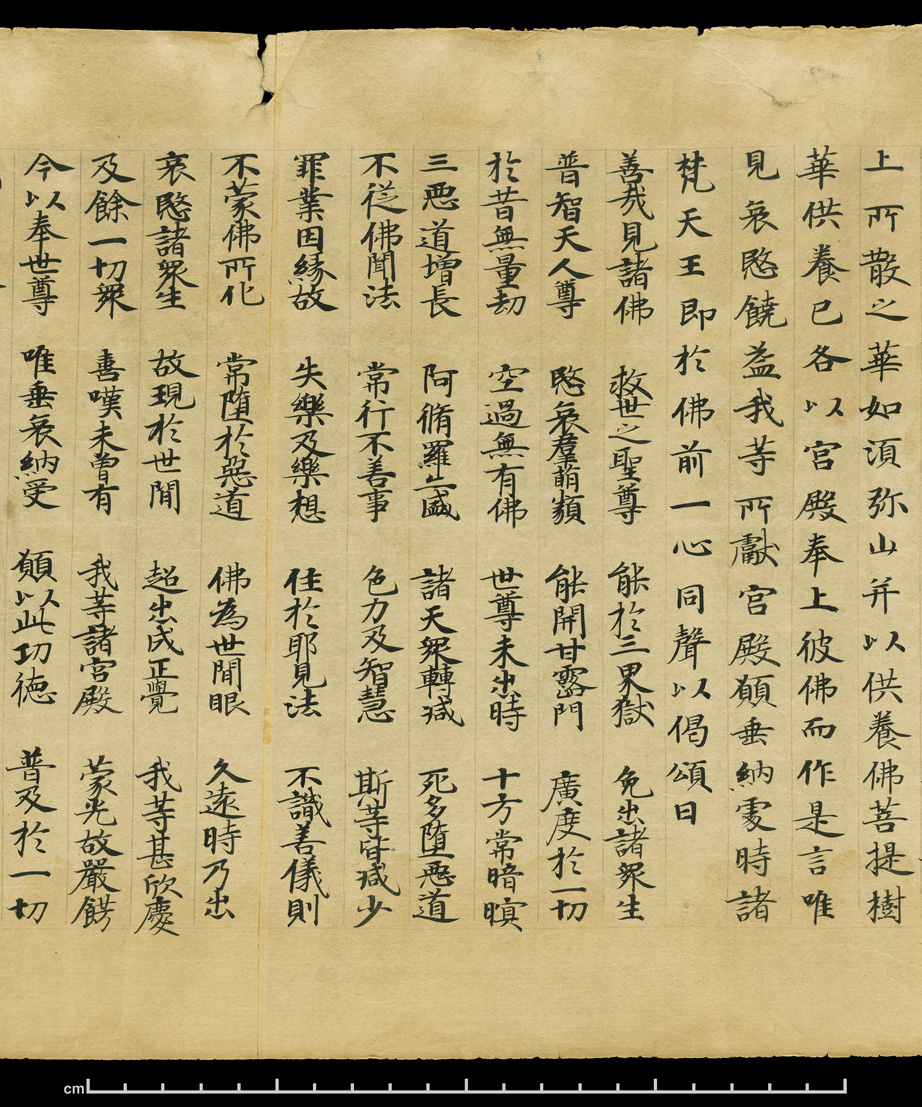 上所散之華如湏弥山并以供養佛菩提樹
華供養已各以宫殿奉上彼佛而作是言唯
見哀愍饒益我等所獻宫殿願垂納處時諸
梵天王即於佛前一心同聲以偈頌曰
善哉見諸佛　救世之聖尊　能於三界獄　免出諸衆生
普智天人尊　愍哀羣萌類　能開甘露門　廣度於一切
於昔無量劫　空過無有佛　世尊未出時　十方常暗暝
三惡道增長　阿脩羅亦盛　諸天衆轉減　死多墮惡道
不從佛聞法　常行不善事　色力及智慧　斯等皆減少
罪業因緣故　失樂及樂想　住於耶見法　不識善儀則
不蒙佛所化　常墮於惡道　佛為世間眼　久遠時乃出
哀愍諸衆生　故現於世間　超出成正覺　我等甚欣慶
及餘一切衆　喜嘆未曾有　我等諸宫殿　蒙光故嚴餝
今以奉世尊　唯垂哀納受　願以此功德　普及於一切